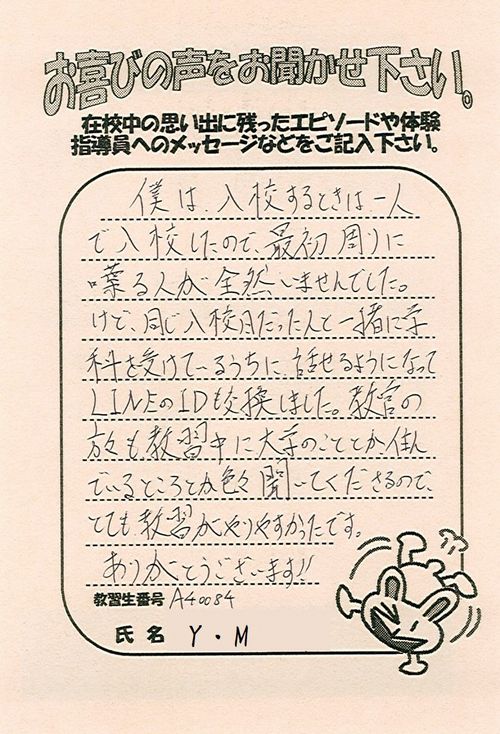 お喜びの声をお聞かせ下さい。
在校中の思い出に残ったエピソードや体験
指導員へのメッセージなどをご記入下さい。
僕は、入校するときは一人
で入校したので、最初周りに
喋る人が全然いませんでした。
けど、同じ入校月だった人と一緒に学
科を受けているうちに、話せるようになって
LINEのIDも交換しました。教官の
方々も教習中に大学のこととか住ん
でいるところとか色々聞いてくださるので、
とても教習がやりやすかったです。
ありがとうございます!!
教習生番号 A40084
氏名 Y・M